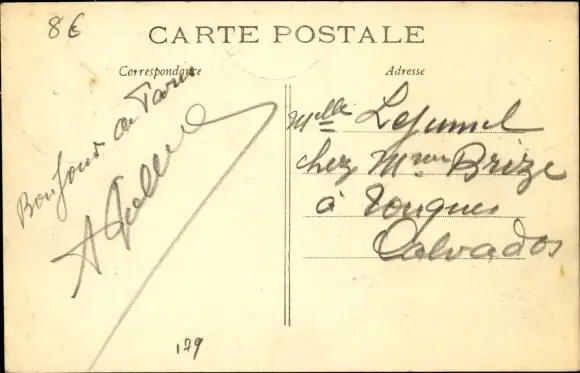 8€
CARTE POSTALE
Correspondance
Adresse
Bonjour de Paris
Melle Lejumel
chez Mme Brize
à Touques
Calvados
179